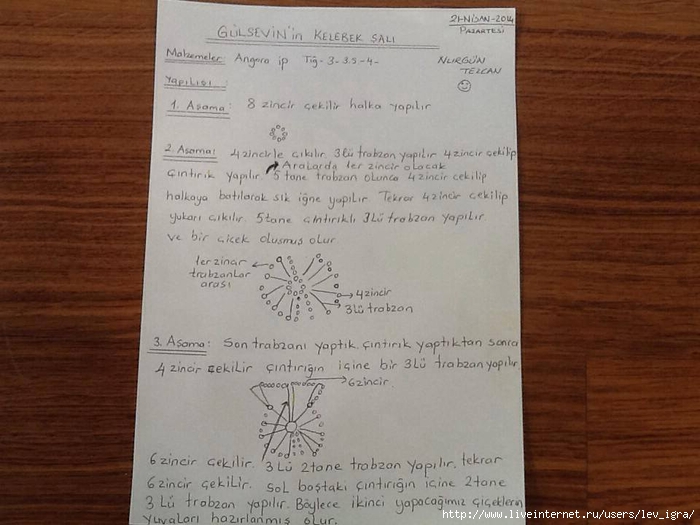 21-NİSAN-2014
PAZARTESİ
GÜLSEVİN'in KELEBEK ŞALI
Malzemeler: Angora ip Tığ-3-3.5-4-
NURGÜN
TEZCAN
Yapılışı:
1. Aşama: 8 zincir çekilir halka yapılır
2. Aşama: 4 zincirle çıkılır. 3lü trabzan yapılır 4 zincir çekilip
Aralarda 1er zincir olacak
çıntırık yapılır. 5 tane trabzan olunca 4 zincir çekilip
halkaya batılarak sık iğne yapılır. Tekrar 4 zincir çekilip
yukarı çıkılır. 5 tane çıntırıklı 3Lü trabzan yapılır
ve bir çiçek oluşmuş olur.
1er zincir
trabzanlar
arası
4 zincir
3Lü trabzan
3. Aşama: Son trabzanı yaptık. çıntırık yaptıktan sonra
4 zincir çekilir çıntırığın içine bir 3Lü trabzan yapılır.
6 zincir.
6 zincir çekilir. 3Lü 2 tane trabzan yapılır. tekrar
6 zincir çekilir. Sol baştaki çıntırığın içine 2 tane
3 Lü trabzan yapılır. Böylece ikinci yapacağımız çiçeklerin
yuvaları hazırlanmış olur.
http://www.liveinternet.ru/users/lev_igra/